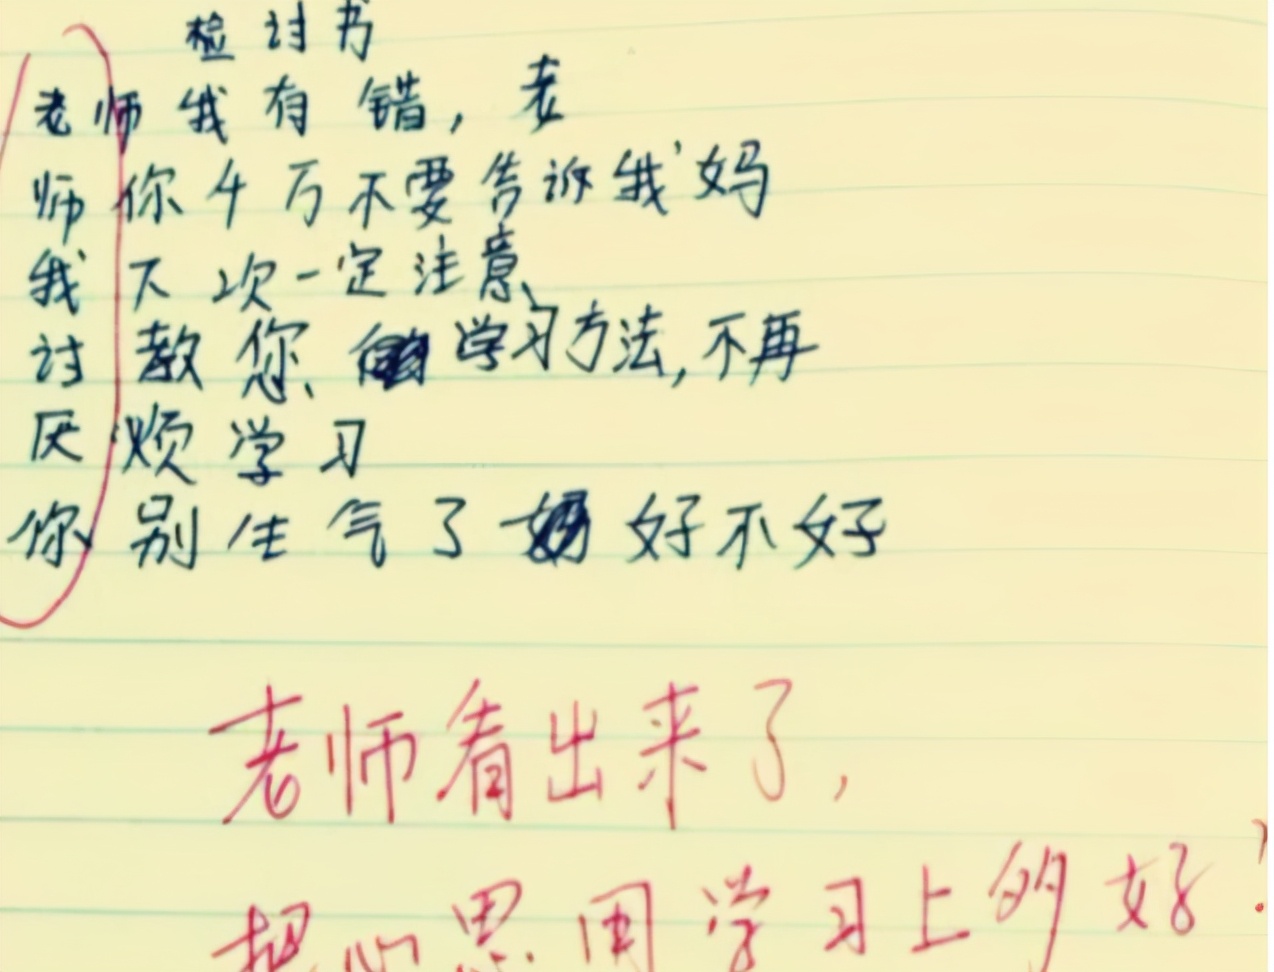 检讨书
老师我有错,老
师你千万不要告诉我妈
我下次一定注意、
讨教您、学习方法,不再
厌烦学习
你别生气了 好不好
老师看出来了,
把心思用学习上多好!